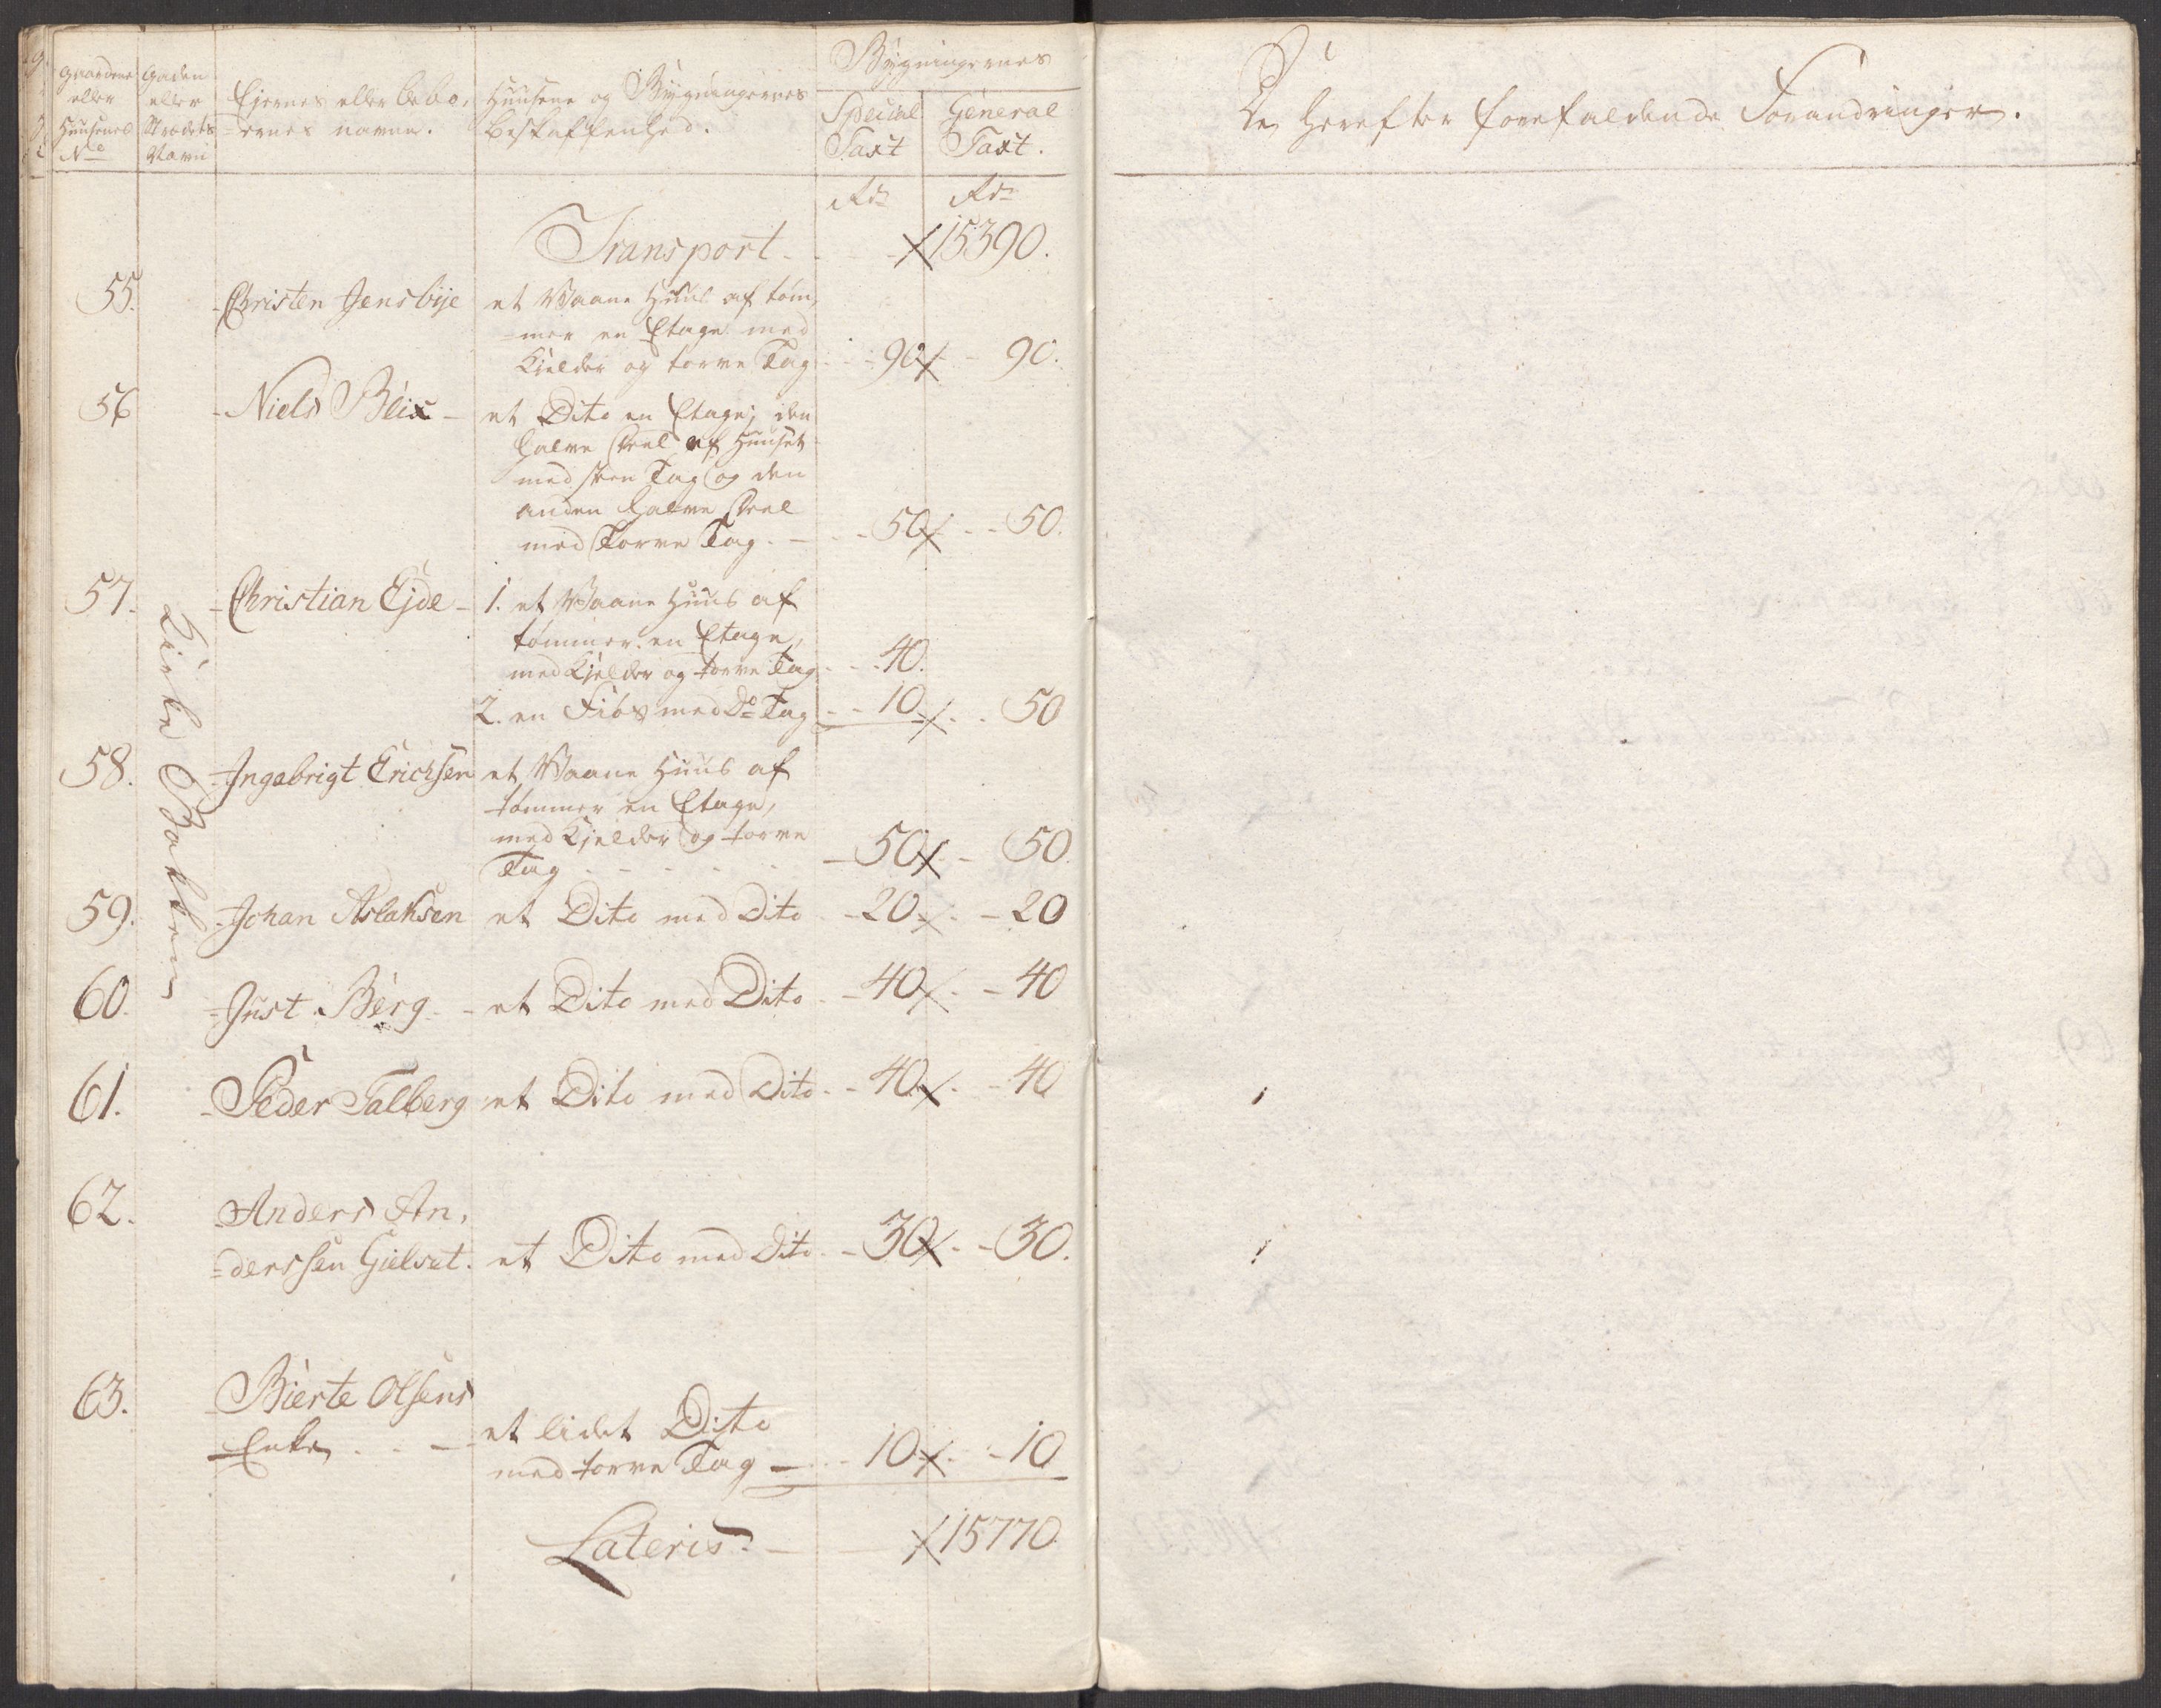 Gaardene eller Huusenes No
Gaden eller Strædets Navn
Ejernes eller bebo-
ernes navne.
Huusene og Bÿgningernes
beskaffenhed.
Bÿgningernes
Special Taxt
General Taxt.
Rdr Rdr
Transport - - - 15390.
55. Christen Jensbÿe et Vaane Huus af tøm-
=mer en Etage med
Kielder og torve Tag - - 90 - 90.
56 Niels Blix - et Dito en Etage; den
halve Deel af Huuset
med steen Tag og den
anden halve Deel
med Torve Tag. - - - 50 - - 50.
57. Christian Ejde - 1. et Vaane Huus af
tømmer en Etage,
med Kjelder og torve Tag - - 40.
2. en Fiøs med Do Tag - - 10 - - 50
Kirke Bakken
58. Ingebrigt Erichsen et Vaane Huus af
tømmer en Etage,
med Kjelder og torve
Tag - - - - - 50 - 50.
59. Johan Aslaksen et Dito med Dito - 20 - - 20
60. Just Berg - - et Dito med Dito - 40 - - 40
61. Peder Talberg et Dito med Dito - - 40 - - 40
62. Anders An-
=derssen Gielset. et Dito med Dito - - 30 - - 30.
63. Bierte Olsens
Enke - - - et lidet Dito
med torve Tag - - - 10 - - 10
Lateris - - 15770.
De herefter forefaldende Forandringer.